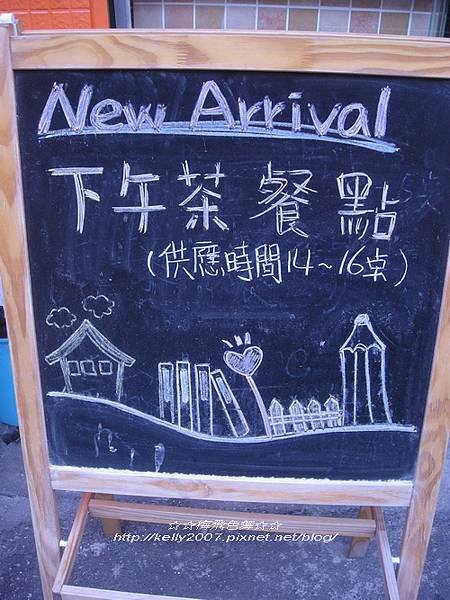 New Arrival
下午茶餐點
(供應時間14~16点)
http://kelly2007.pixnet.net/blog/